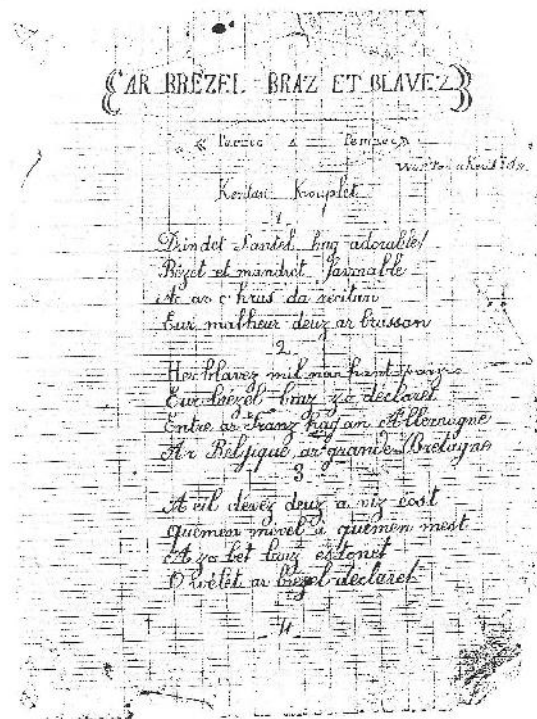 AR BREZEL BRAZ ET BLAVEZ
« Parzec a Pemzec »
War ton
Kentan Kouplet
1
Drindet Santel hag adorable
Bezet et mandret favorable
A ar c'hras da recitan
Eur malheur deuz ar brassan
2
Her blavez mil nao hant
Eur brezel braz zo declaret
Entre ar Franz hag an Allemagne
Ar Beljique ar grande Bretagne
3
A eil devez deuz a viz east
quemen mevel a quemen mest
A zo bet estonet
O welet ar brezel declaret
4